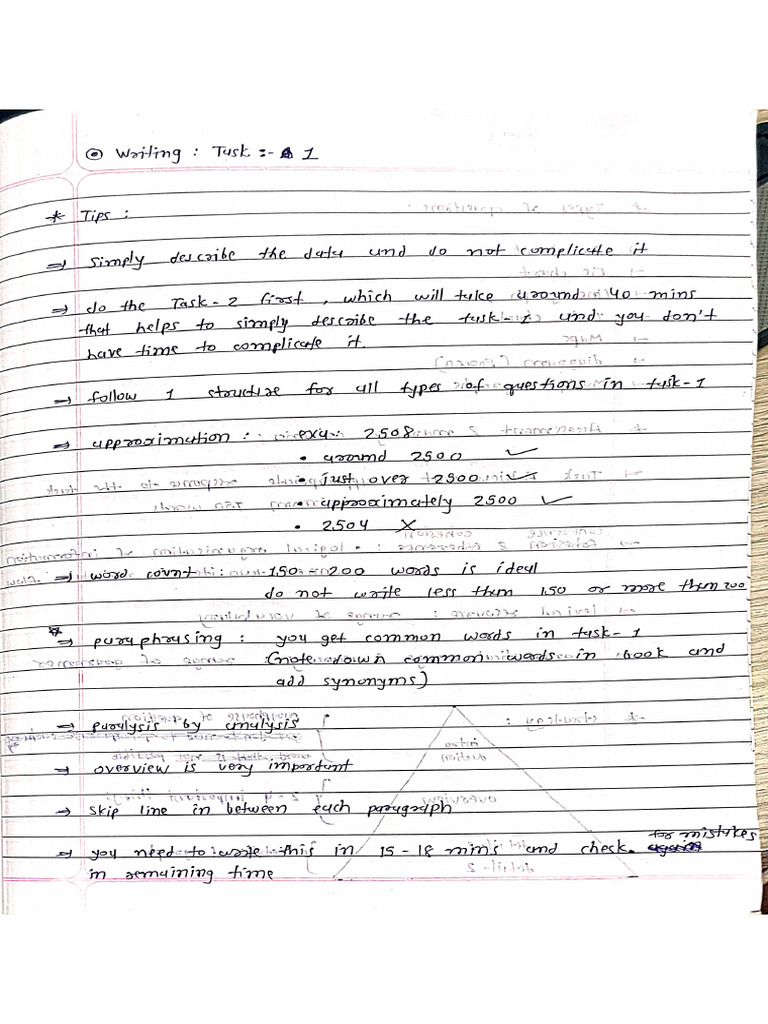 ⊙ Writing : Task :- 1
* Tips :
⇒ Simply describe the data and do not complicate it
⇒ do the Task-2 first, which will take around 40 mins
that helps to simply describe the task-1 and you don't
have time to complicate it.
⇒ follow 1 structure for all types of questions in task-1
⇒ approximation : ex:- 2508
• around 2500 ✓
• just over 2500 ✓
• approximately 2500 ✓
• 2504 ✗
⇒ word count : 150 - 200 words is ideal
do not write less than 150 or more than 200
* ⇒ paraphrasing : you get common words in task-1
(note down common words in book and
add synonyms)
→ paralysis by analysis
→ overview is very important
→ skip line in between each paragraph
→ you need to write this in 15-18 mins and check for mistakes
in remaining time